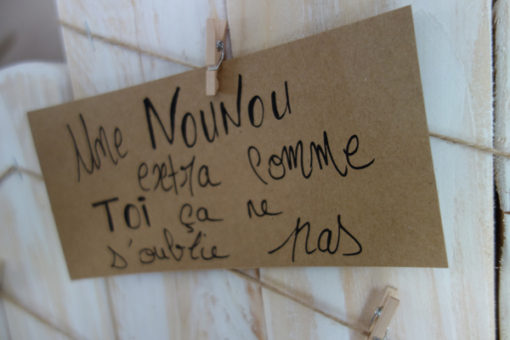 Une NOUNOU
extra comme
TOi ça ne
s'oublie pas